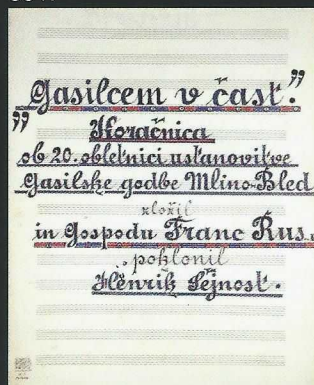 „Gasilcem v čast."
Koračnica
ob 20. obletnici ustanovitve
Gasilske godbe Mlino-Bled
zložil
in gospodu Franc Rus.
poklonil
Henrik Šejnost.